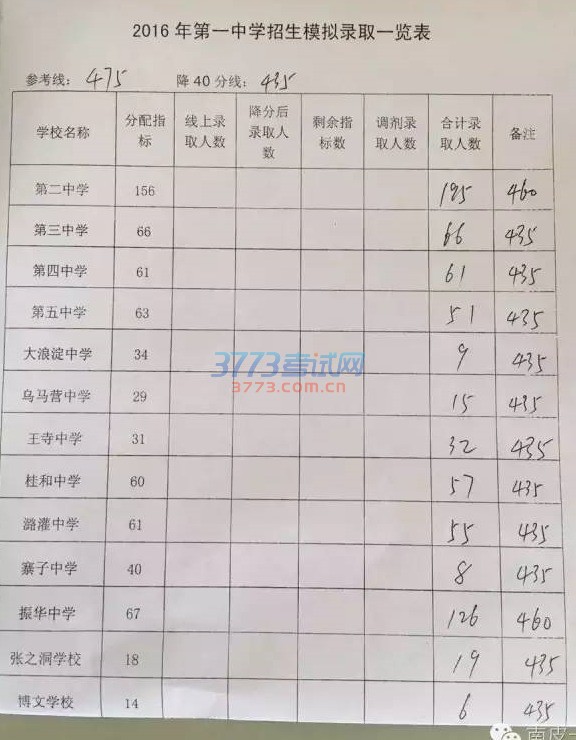 2016年第一中学招生模拟录取一览表
参考线: 475 降40分线: 435
学校名称 分配指标 线上录取人数 降分后录取人数 剩余指标数 调剂录取人数 合计录取人数 备注
第二中学 156 195 460
第三中学 66 66 435
第四中学 61 61 435
第五中学 63 51 435
大浪淀中学 34 9 435
3773考试网
3773.com.cn
乌马营中学 29 15 435
王寺中学 31 32 435
桂和中学 60 57 435
潞灌中学 61 55 435
寨子中学 40 8 435
振华中学 67 126 460
张之洞学校 18 19 435
博文学校 14 6 435
南皮一